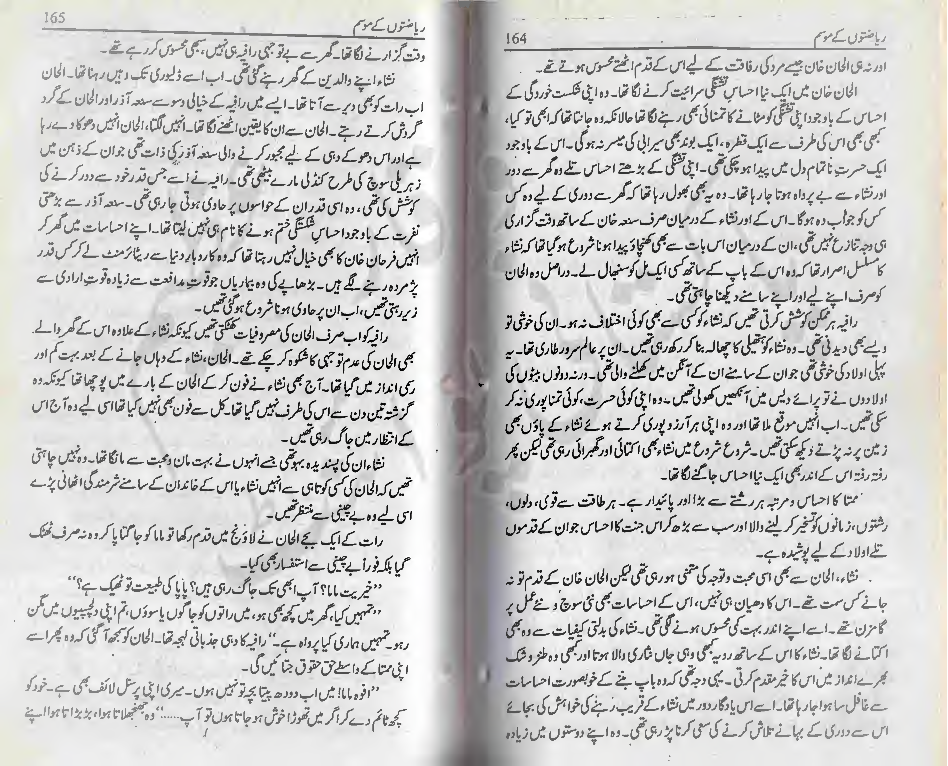 ریاضتوں کے موسم
164
اور نہ ہی الحان خان جیسے مرد کی رفاقت کے لیے اس کے قدم اٹھتے محسوس ہوتے تھے۔
الحان خان میں ایک نیا احساس تشنگی سرائیت کرنے لگا تھا۔ وہ اپنی شکست خوردگی کے
احساس کے باوجود اپنی تشنگی کو مٹانے کا تمنائی بھی رہنے لگا تھا حالانکہ وہ جانتا تھا کہ ابھی تو کیا،
کبھی بھی اس کی طرف سے ایک قطرہ، ایک بوند بھی سیرابی کی میسر نہ ہوگی۔ اس کے باوجود
ایک حسرت ناتمام دل میں پیدا ہو چکی تھی۔ اپنی تشنگی کے بڑھتے احساس تلے وہ گھر سے دور
اور نشاء سے بے پرواہ ہوتا جا رہا تھا۔ وہ یہ بھی بھول رہا تھا کہ گھر سے دوری کے لیے وہ کس
کس کو جواب دہ ہوگا۔ اس کے اور نشاء کے درمیان صرف سنعہ خان کے ساتھ وقت گزاری
ہی وجہ تنازع نہیں تھی، ان کے درمیان اس بات سے بھی کھنچاؤ پیدا ہونا شروع ہو گیا تھا کہ نشاء
کا مسلسل اصرار تھا کہ وہ اس کے باپ کے ساتھ کسی ایک مل کو سنبھال لے۔ دراصل وہ الحان
کو صرف اپنے لیے اور اپنے سامنے دیکھنا چاہتی تھی۔
رافیہ ہر ممکن کوشش کرتی تھیں کہ نشاء کو کسی سے بھی کوئی اختلاف نہ ہو۔ ان کی خوشی تو
ویسے بھی دیدنی تھی۔ وہ نشاء کو ہتھیلی کا چھالہ بنا کر رکھ رہی تھیں۔ ان پر عالم سرور طاری تھا۔ یہ
پہلی اولاد کی خوشی تھی جو ان کے سامنے ان کے آنگن میں کھلنے والی تھی۔ ورنہ دونوں بیٹوں کی
اولادوں نے تو پرائے دیس میں آنکھیں کھولی تھیں۔ وہ اپنی کوئی حسرت، کوئی تمنا پوری نہ کر
سکی تھیں۔ اب انہیں موقع ملا تھا اور وہ اپنی ہر آرزو پوری کرتے ہوئے نشاء کے پاؤں بھی
زمین پر نہ پڑنے دیکھ سکتی تھیں۔ شروع شروع میں نشاء بھی اکتائی اور گھبرائی رہی تھی لیکن پھر
رفتہ رفتہ اس کے اندر بھی ایک نیا احساس جاگنے لگا تھا۔
ممتا کا احساس و مرتبہ ہر رشتے سے بڑا اور پائیدار ہے۔ ہر طاقت سے قوی، دلوں،
رشتوں، زمانوں کو تسخیر کر لینے والا اور سب سے بڑھ کر اس جنت کا احساس جو ان کے قدموں
تلے اولاد کے لیے پوشیدہ ہے۔
نشاء، الحان سے بھی اسی محبت و توجہ کی متمنی ہو رہی تھی لیکن الحان خان کے قدم تو نہ
جانے کس سمت تھے۔ اس کا دھیان ہی نہیں، اس کے احساسات بھی نئی سوچ و نئے عمل پر
گامزن تھے۔ اسے اپنے اندر بہت کمی محسوس ہونے لگی تھی۔ نشاء کی بدلتی کیفیات سے وہ بھی
اکتانے لگا تھا۔ نشاء کا اس کے ساتھ رویہ کبھی وہی جاں نثاری والا ہوتا اور کبھی وہ طنز و شک
بھرے انداز میں اس کا خیر مقدم کرتی۔ یہی وجہ تھی کہ وہ باپ بننے کے خوبصورت احساسات
سے غافل سا ہوا جا رہا تھا۔ اسے اس یادگار دور میں نشاء کے قریب رہنے کی خواہش کی بجائے
اس سے دوری کے بہانے تلاش کرنے کی سعی کرنا پڑ رہی تھی۔ وہ اپنے دوستوں میں زیادہ
ریاضتوں کے موسم
165
وقت گزارنے لگا تھا۔ گھر سے بے توجہی رافیہ ہی نہیں، سبھی محسوس کر رہے تھے۔
نشاء اپنے والدین کے گھر رہنے گئی تھی۔ اب اسے ڈلیوری تک وہیں رہنا تھا۔ الحان
اب رات کو بھی دیر سے آتا تھا۔ ایسے میں رافیہ کے خیالی وسوسے سنعہ آذر اور الحان کے گرد
گردش کرتے رہتے۔ الحان سے ان کا یقین اٹھنے لگا تھا۔ انہیں لگتا، الحان انہیں دھوکا دے رہا
ہے اور اس دھوکے دہی کے لیے مجبور کرنے والی سنعہ آذر کی ذات تھی جو ان کے ذہن میں
زہریلی سوچ کی طرح کنڈلی مارے بیٹھی تھی۔ رافیہ نے اسے جس قدر خود سے دور کرنے کی
کوشش کی تھی، وہ اسی قدر ان کے حواسوں پر حاوی ہوتی جا رہی تھی۔ سنعہ آذر سے بڑھتی
نفرت کے باوجود احساس شکستگی ختم ہونے کا نام ہی نہیں لیتا تھا۔ اپنے احساسات میں گھر کر
انہیں فرحان خان کا بھی خیال نہیں رہتا تھا کہ وہ کاروبار دنیا سے ریٹائرمنٹ لے کر کس قدر
پژمردہ رہنے لگے ہیں۔ بڑھاپے کی وہ بیماریاں جو قوت مدافعت سے زیادہ قوت ارادی سے
زیر رہتی تھیں، اب ان پر حاوی ہونا شروع ہو گئی تھیں۔
رافیہ کو اب صرف الحان کی مصروفیات کھٹکتی تھیں کیونکہ نشاء کے علاوہ اس کے گھر والے
بھی الحان کی عدم توجہی کا شکوہ کر چکے تھے۔ الحان، نشاء کے وہاں جانے کے بعد بہت کم اور
رسمی انداز میں گیا تھا۔ آج بھی نشاء نے فون کر کے الحان کے بارے میں پوچھا تھا کیونکہ وہ
گزشتہ تین دن سے اس کی طرف نہیں گیا تھا۔ کل سے فون بھی نہیں کیا تھا اسی لیے وہ آج اس
کے انتظار میں جاگ رہی تھیں۔
نشاء ان کی پسندیدہ بہو تھی جسے انہوں نے بہت مان و محبت سے مانگا تھا۔ وہ نہیں چاہتی
تھیں کہ الحان کی کسی کوتاہی سے انہیں نشاء یا اس کے خاندان کے سامنے شرمندگی اٹھانی پڑے
اسی لیے وہ بے چینی سے منتظر تھیں۔
رات کے ایک بجے الحان نے لاؤنج میں قدم رکھا تو ماما کو جاگتا پا کر وہ نہ صرف ٹھٹک
گیا بلکہ فوراً بے چینی سے استفسار بھی کیا۔
”خیریت ماما؟ آپ ابھی تک جاگ رہی ہیں؟ پاپا کی طبیعت تو ٹھیک ہے؟“
”تمہیں کیا، گھر میں کچھ بھی ہو، میں راتوں کو جاگوں یا سوؤں، تم اپنی دلچسپیوں میں مگن
رہو۔ تمہیں ہماری کیا پرواہ ہے۔“ رافیہ کا وہی جذباتی لہجہ تھا۔ الحان کو سمجھ آ گئی کہ وہ پھر اسے
اپنی ممتا کے واسطے حق حقوق جتائیں گی۔
”افوہ ماما! میں اب دودھ پیتا بچہ تو نہیں ہوں۔ میری اپنی پرسنل لائف بھی ہے۔ خود کو
کچھ ٹائم دے کر اگر میں تھوڑا خوش ہو جاتا ہوں تو آپ......“ وہ جھنجھلاتا ہوا، بڑبڑاتا ہوا اپنے